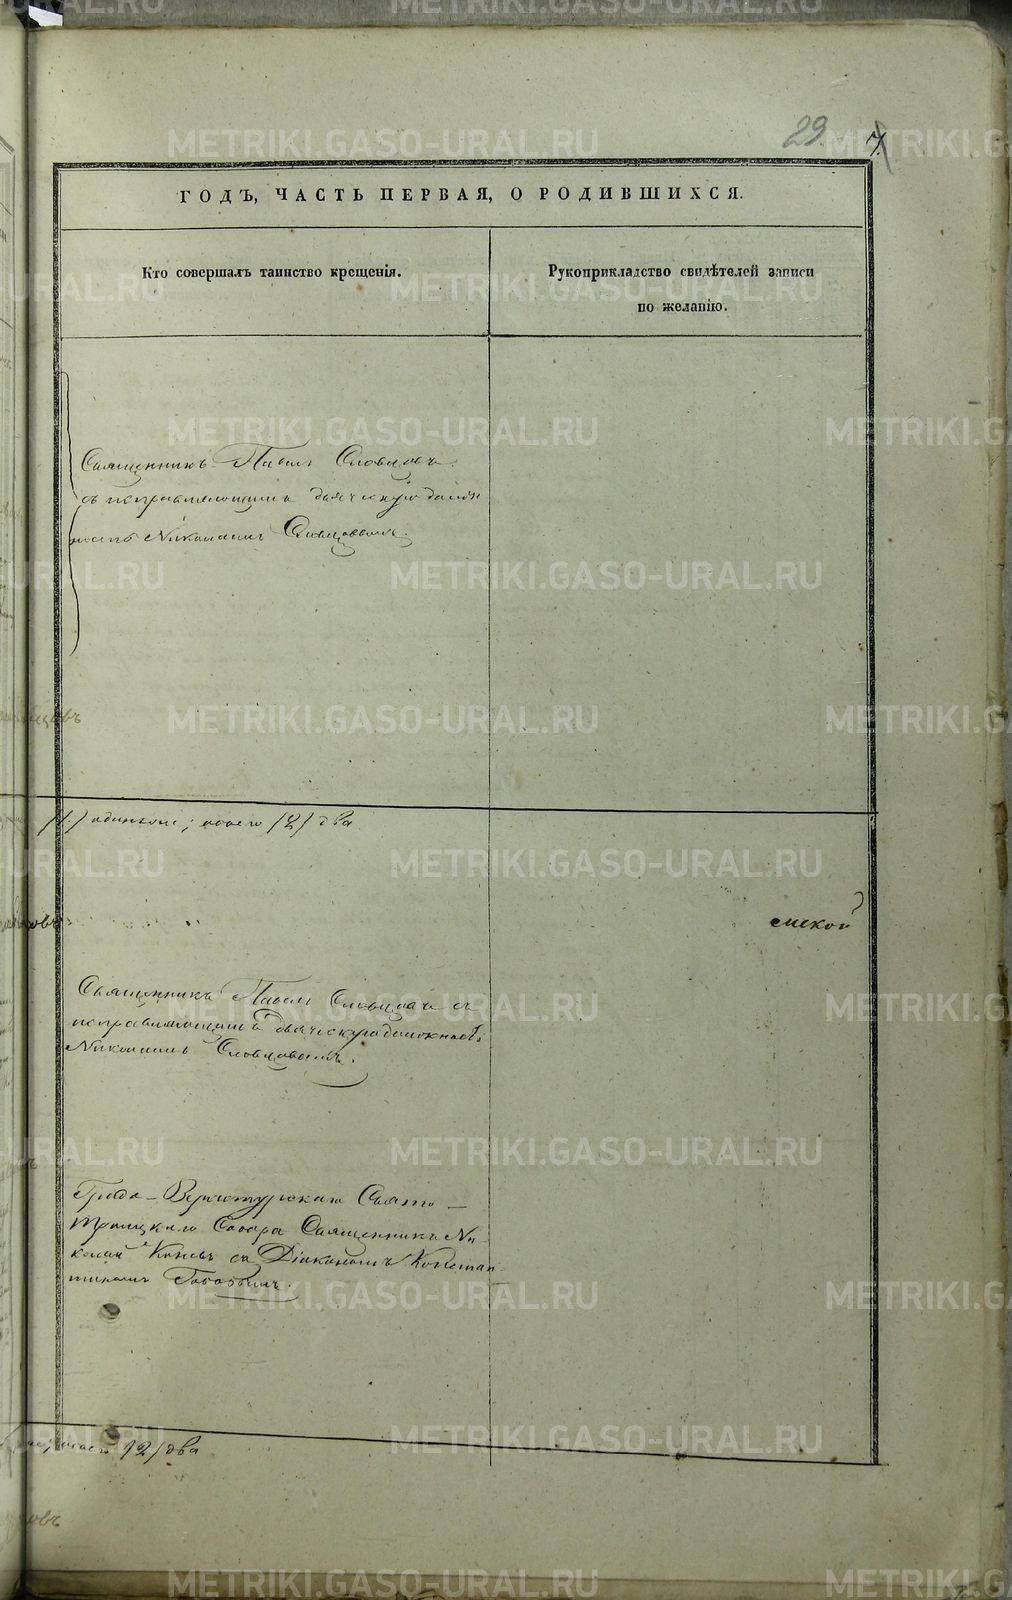 29. 7.
ГОДЪ, ЧАСТЬ ПЕРВАЯ, О РОДИВШИХСЯ.
Кто совершалъ таинство крещенія.
Рукоприкладство свидѣтелей записи
по желанію.
Священникъ Павелъ Словцовъ
съ исправляющимъ дьяческую долж
ность Николаемъ Словцовымъ.
(1) одинъ; всего (2) два
ской
Священникъ Павелъ Словцовъ съ
исправляющимъ дьяческую должность
Николаемъ Словцовымъ.
Градо-Верхотурскаго Свято-
Троицкаго Собора Священникъ Ни-
колай съ Діакономъ Констан-
тиномъ
(2) два
METRIKI.GASO-URAL.RU